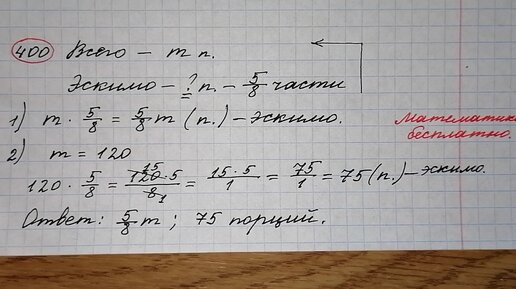 400 Всего – m п.
Эскимо – ? п. – 5/8 части
1) m · 5/8 = 5/8 m (п.) – эскимо.
Математика бесплатно.
2) m = 120
120 · 5/8 = 120 · 5 / 8 = 15 · 5 / 1 = 75/1 = 75 (п.) – эскимо.
15
1
Ответ: 5/8 m ; 75 порций.